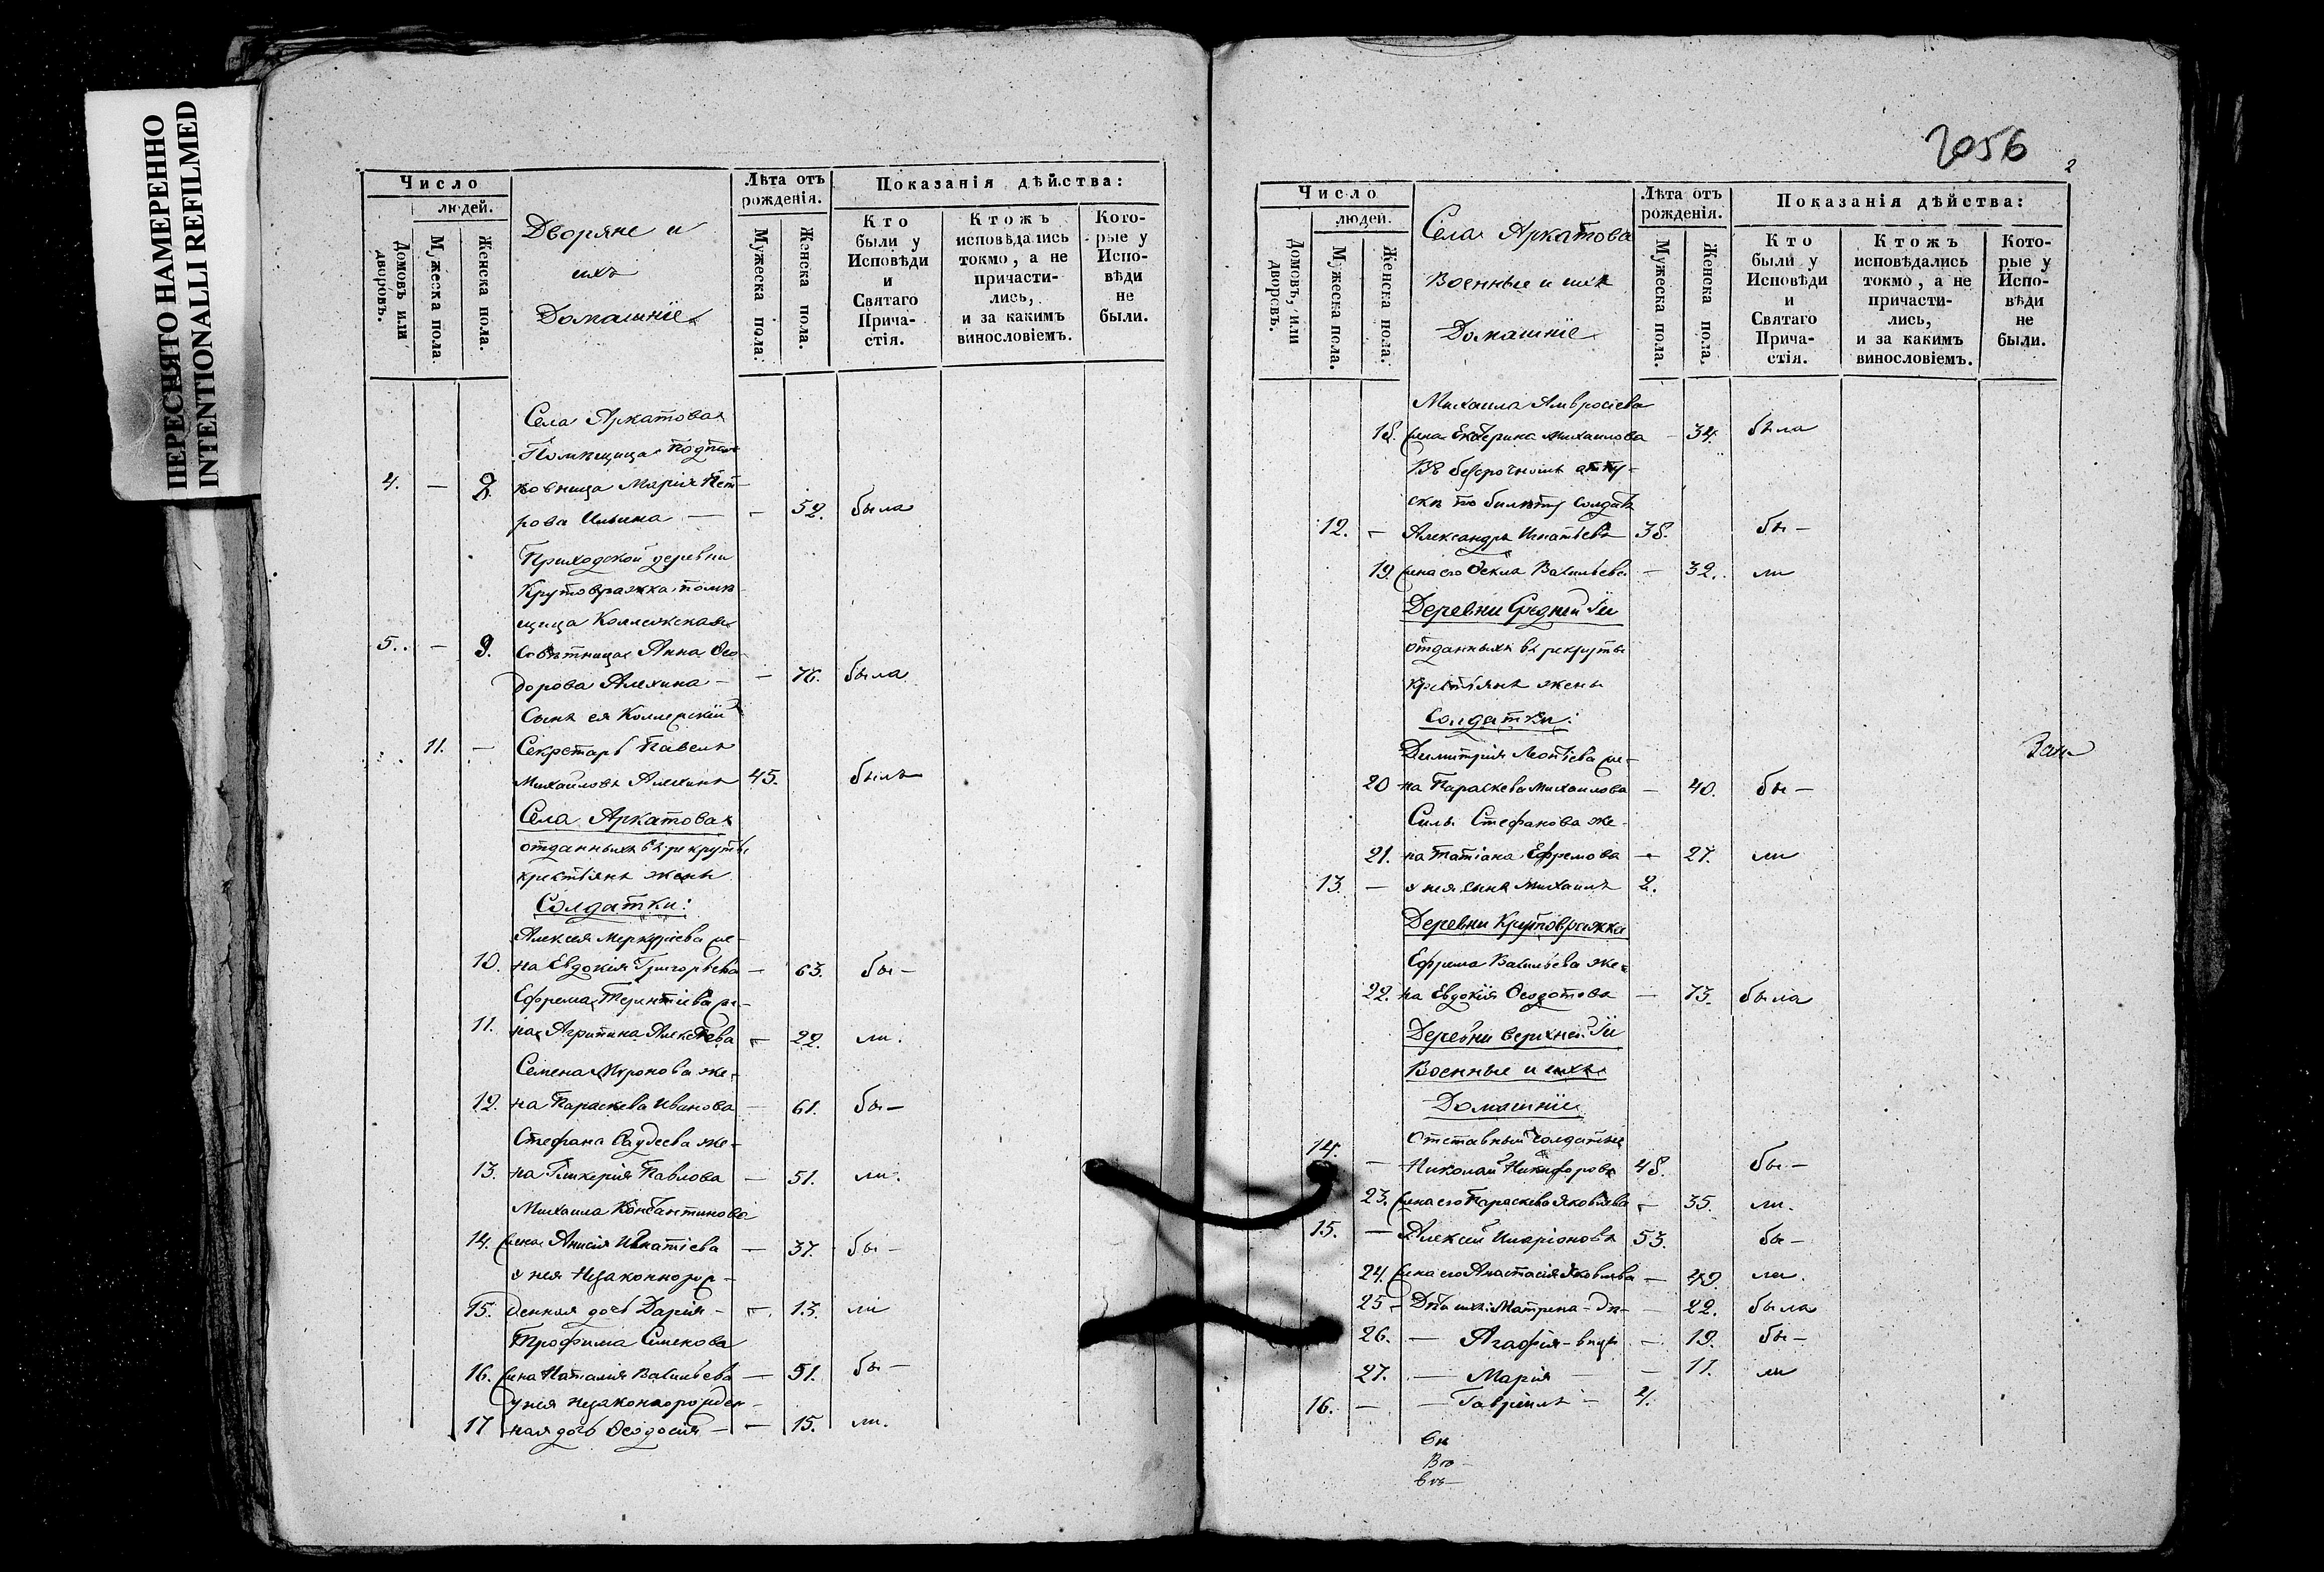 ПЕРЕСНЯТО НАМЕРЕННО
INTENTIONALLI REFILMED
Число
людей.
Домовъ или дворовъ.
Мужеска пола.
Женска пола.
Дворяне и
ихъ
Домашніе
Лѣта отъ рожденія.
Мужеска пола.
Женска пола.
Показанія дѣйства:
Кто были у Исповѣди и Святаго Прича-стія.
Ктожъ исповѣдались токмо, а не причасти-лись, и за какимъ винословіемъ.
Кото-рые у Испо-вѣди не были.
Села Аркатова
Помѣщица Подпол-
4. — 8. ковница Марія Пет-
рова Ильина — — 52. была
Приходской деревни
Крутовражка помѣ-
щица Коллежская
5. — 9. Совѣтница Анна Ѳео-
дорова Алехина — — 76. была
Сынъ ея Коллежскій
11. — Секретарь Павелъ
Михайловъ Алехинъ 45. былъ
Села Аркатова
отданныхъ въ рекруты
крестьянъ жены
Солдатки:
Алексея Меркуріева же-
10. на Евдокія Григорьева — 63. бы—
Ефрема Терентіева же-
11. на Агрипина Алексѣева — 22. ли.
Семена Миронова же-
12. на Параскева Иванова — 61. бы—
Стефана Фаддеева же-
13. на Гликерія Павлова — 51. ли.
Михаила Константинова
14. жена Анисія Игнатіева — 37. бы—
у нея незаконнорож-
15. денная дочь Дарія — — 13. ли
Трофима Семенова
16. жена Наталія Васильева — 51. бы—
у нея незаконнорожден-
17 ная дочь Ѳеодосія — — 15. ли.
2056
2
Число
людей.
Домовъ, или дворовъ.
Мужеска пола.
Женска пола.
Села Аркатова
Военные и ихъ
Домашніе
Лѣта отъ рожденія.
Мужеска пола.
Женска пола.
Показанія дѣйства:
Кто были у Исповѣди и Святаго Прича-стія.
Ктожъ исповѣдались токмо, а не причасти-лись, и за какимъ винословіемъ.
Кото-рые у Испо-вѣди не были.
Михаила Амвросіева
18. жена Екатерина Михаилова — 34. была
Въ безсрочномъ отпу-
скѣ по билету солдатъ
12. — Александръ Игнатьевъ 38. бы—
19. жена его Ѳекла Васильева — 32. ли
Деревни Средней
отданныхъ въ рекруты
крестьянъ жены
Солдатки:
Димитрія Леонтіева же-
20 на Параскева Михаилова — 40. бы—
Силы Стефанова же-
21. на Татіана Ефремова — 27. ли
13. — у нея сынъ Михаилъ 2.
Деревни Крутовражка
Ефрема Васильева же-
22. на Евдокія Ѳеодотова — 73. была
Деревни верхней
Военные и ихъ
Домашніе
Отставный солдатъ
14. — Николай Никифоровъ 48. бы—
23. жена его Параскева Яковлева — 35. ли.
15. — Алексей Иларіоновъ 53. бы—
24. жена его Анастасія Яковлева — 49. ли.
25 — Дѣти ихъ: Матрена — — 22. была
26. — Агафія — — 19. бы—
27. — Марія — 11. ли
16. — — Гавріилъ — 4.